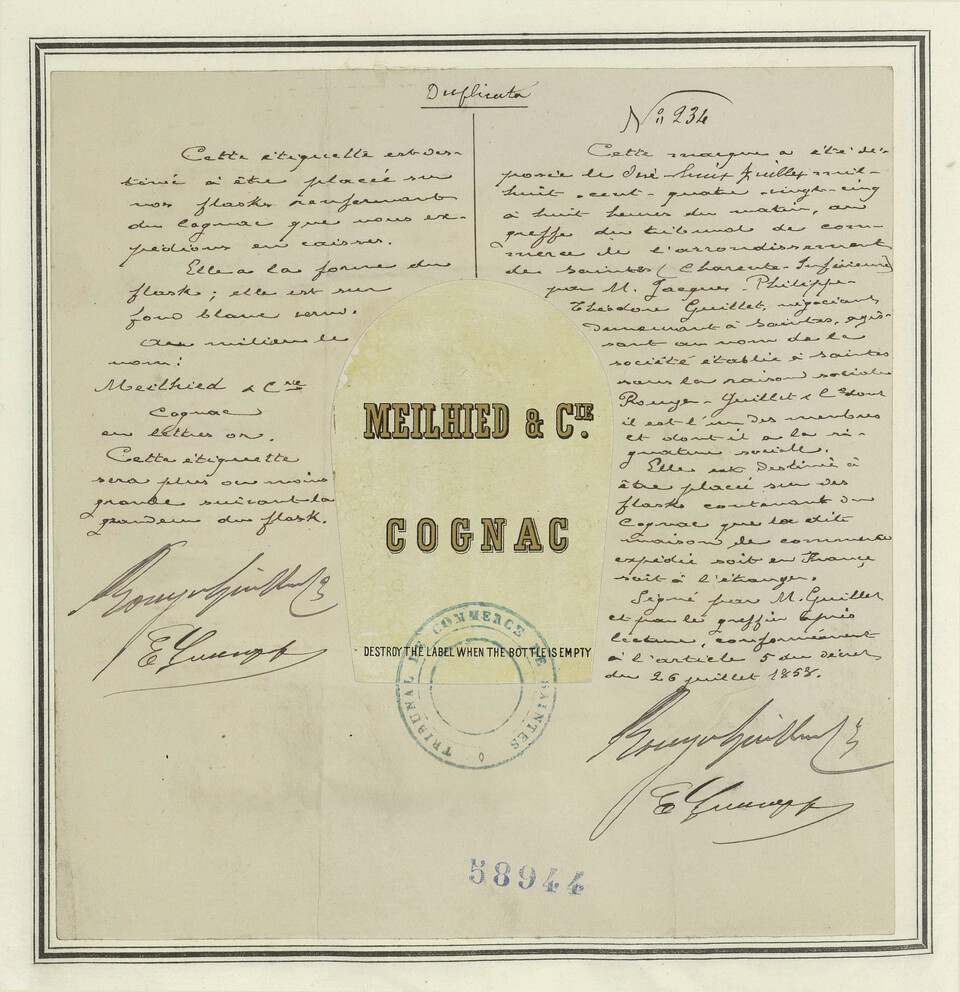 Duplicata
Cette étiquette est des-
tinée à être placée sur
nos flasks renfermant
du Cognac que nous ex-
pédions en caisses.
Elle a la forme du
flask ; elle est sur
fond blanc
Au milieu le
nom :
Meilhied & Cie
Cognac
en lettres or.
Cette étiquette
sera plus ou moins
grande suivant la
grandeur du flask.
Rouyer Guillet
N° 234
Cette marque a été dé-
posée le dix-huit Juillet mil-
huit-cent-quatre-vingt-cinq
à huit heures du matin, au
greffe du tribunal de com-
merce de l'arrondissement
de Saintes (Charente-Inférieure)
par M. Jacques-Philippe-
Théodore Guillet, négociant
demeurant à Saintes, agis-
sant au nom de la
société établie à Saintes
sous la raison sociale
Rouyer-Guillet & Cie dont
il est l'un des membres
et dont il a la si-
gnature sociale.
Elle est destinée à
être placée sur des
flasks contenant du
Cognac que la dite
maison de commerce
expédie soit en France
soit à l'étranger.
Signé par M. Guillet
et par le greffier après
lecture, conformément
à l'article 5 du décret
du 26 juillet 1858.
Rouyer Guillet
MEILHIED & CIE.
COGNAC
DESTROY THE LABEL WHEN THE BOTTLE IS EMPTY
TRIBUNAL DE COMMERCE DE SAINTES
58944